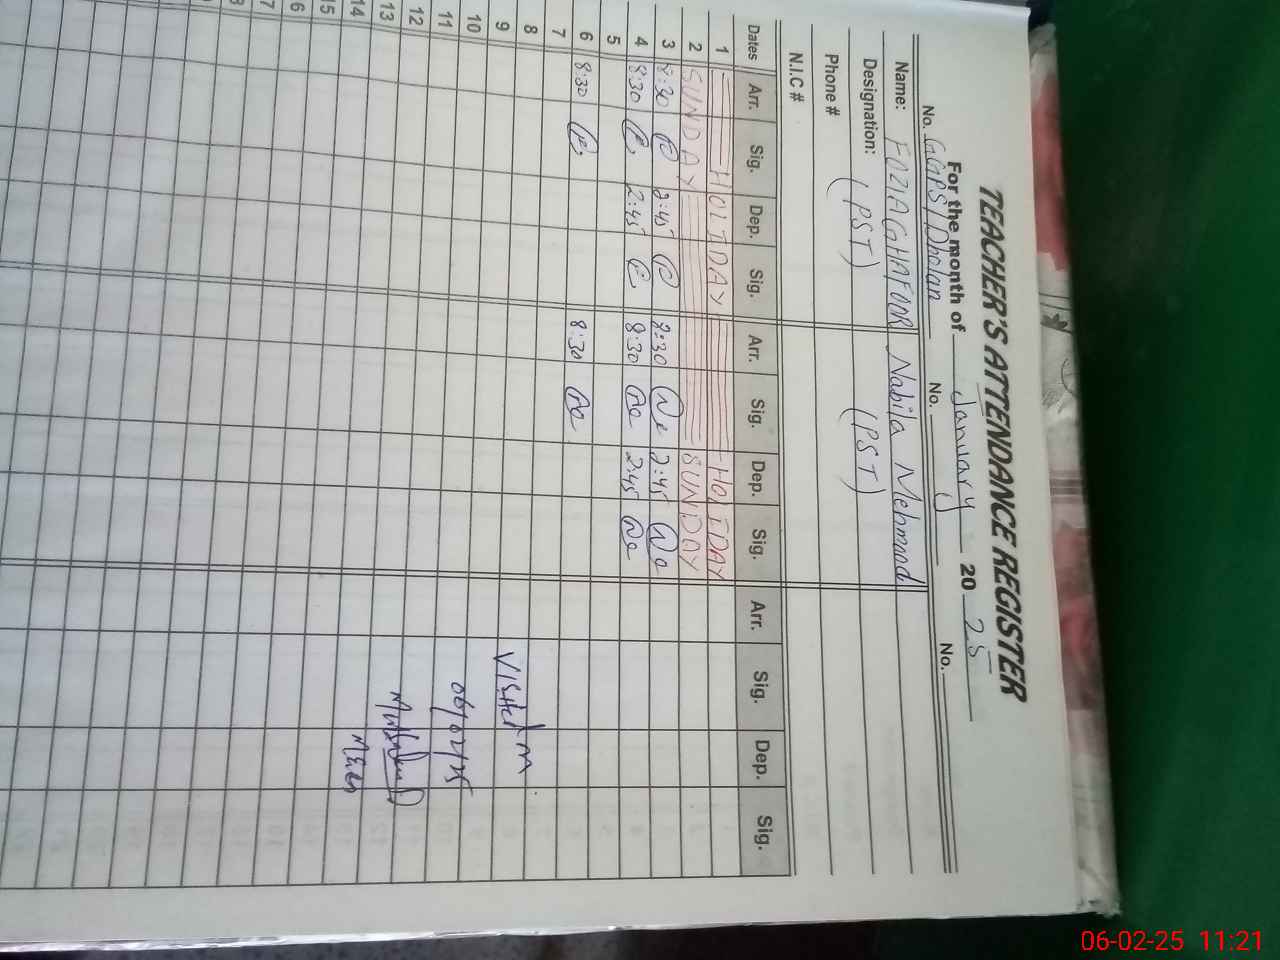 TEACHER'S ATTENDANCE REGISTER
For the month of January 2025
No. GGPS/Dholan No. No.
Name: FOZIA GHAFOOR Nabila Mehmood
Designation: (PST) (PST)
Phone #
N.I.C #
Dates Arr. Sig. Dep. Sig. Arr. Sig. Dep. Sig. Arr. Sig. Dep. Sig.
1 HOLIDAY HOLIDAY
2 SUNDAY SUNDAY
3 8:30 2:45 8:30 2:45
4 8:30 2:45 8:30 2:45
5
6 8:30 8:30
7
8
9 Visited
10
11 06/02/25
12
13
14
15
16
17
06-02-25 11:21